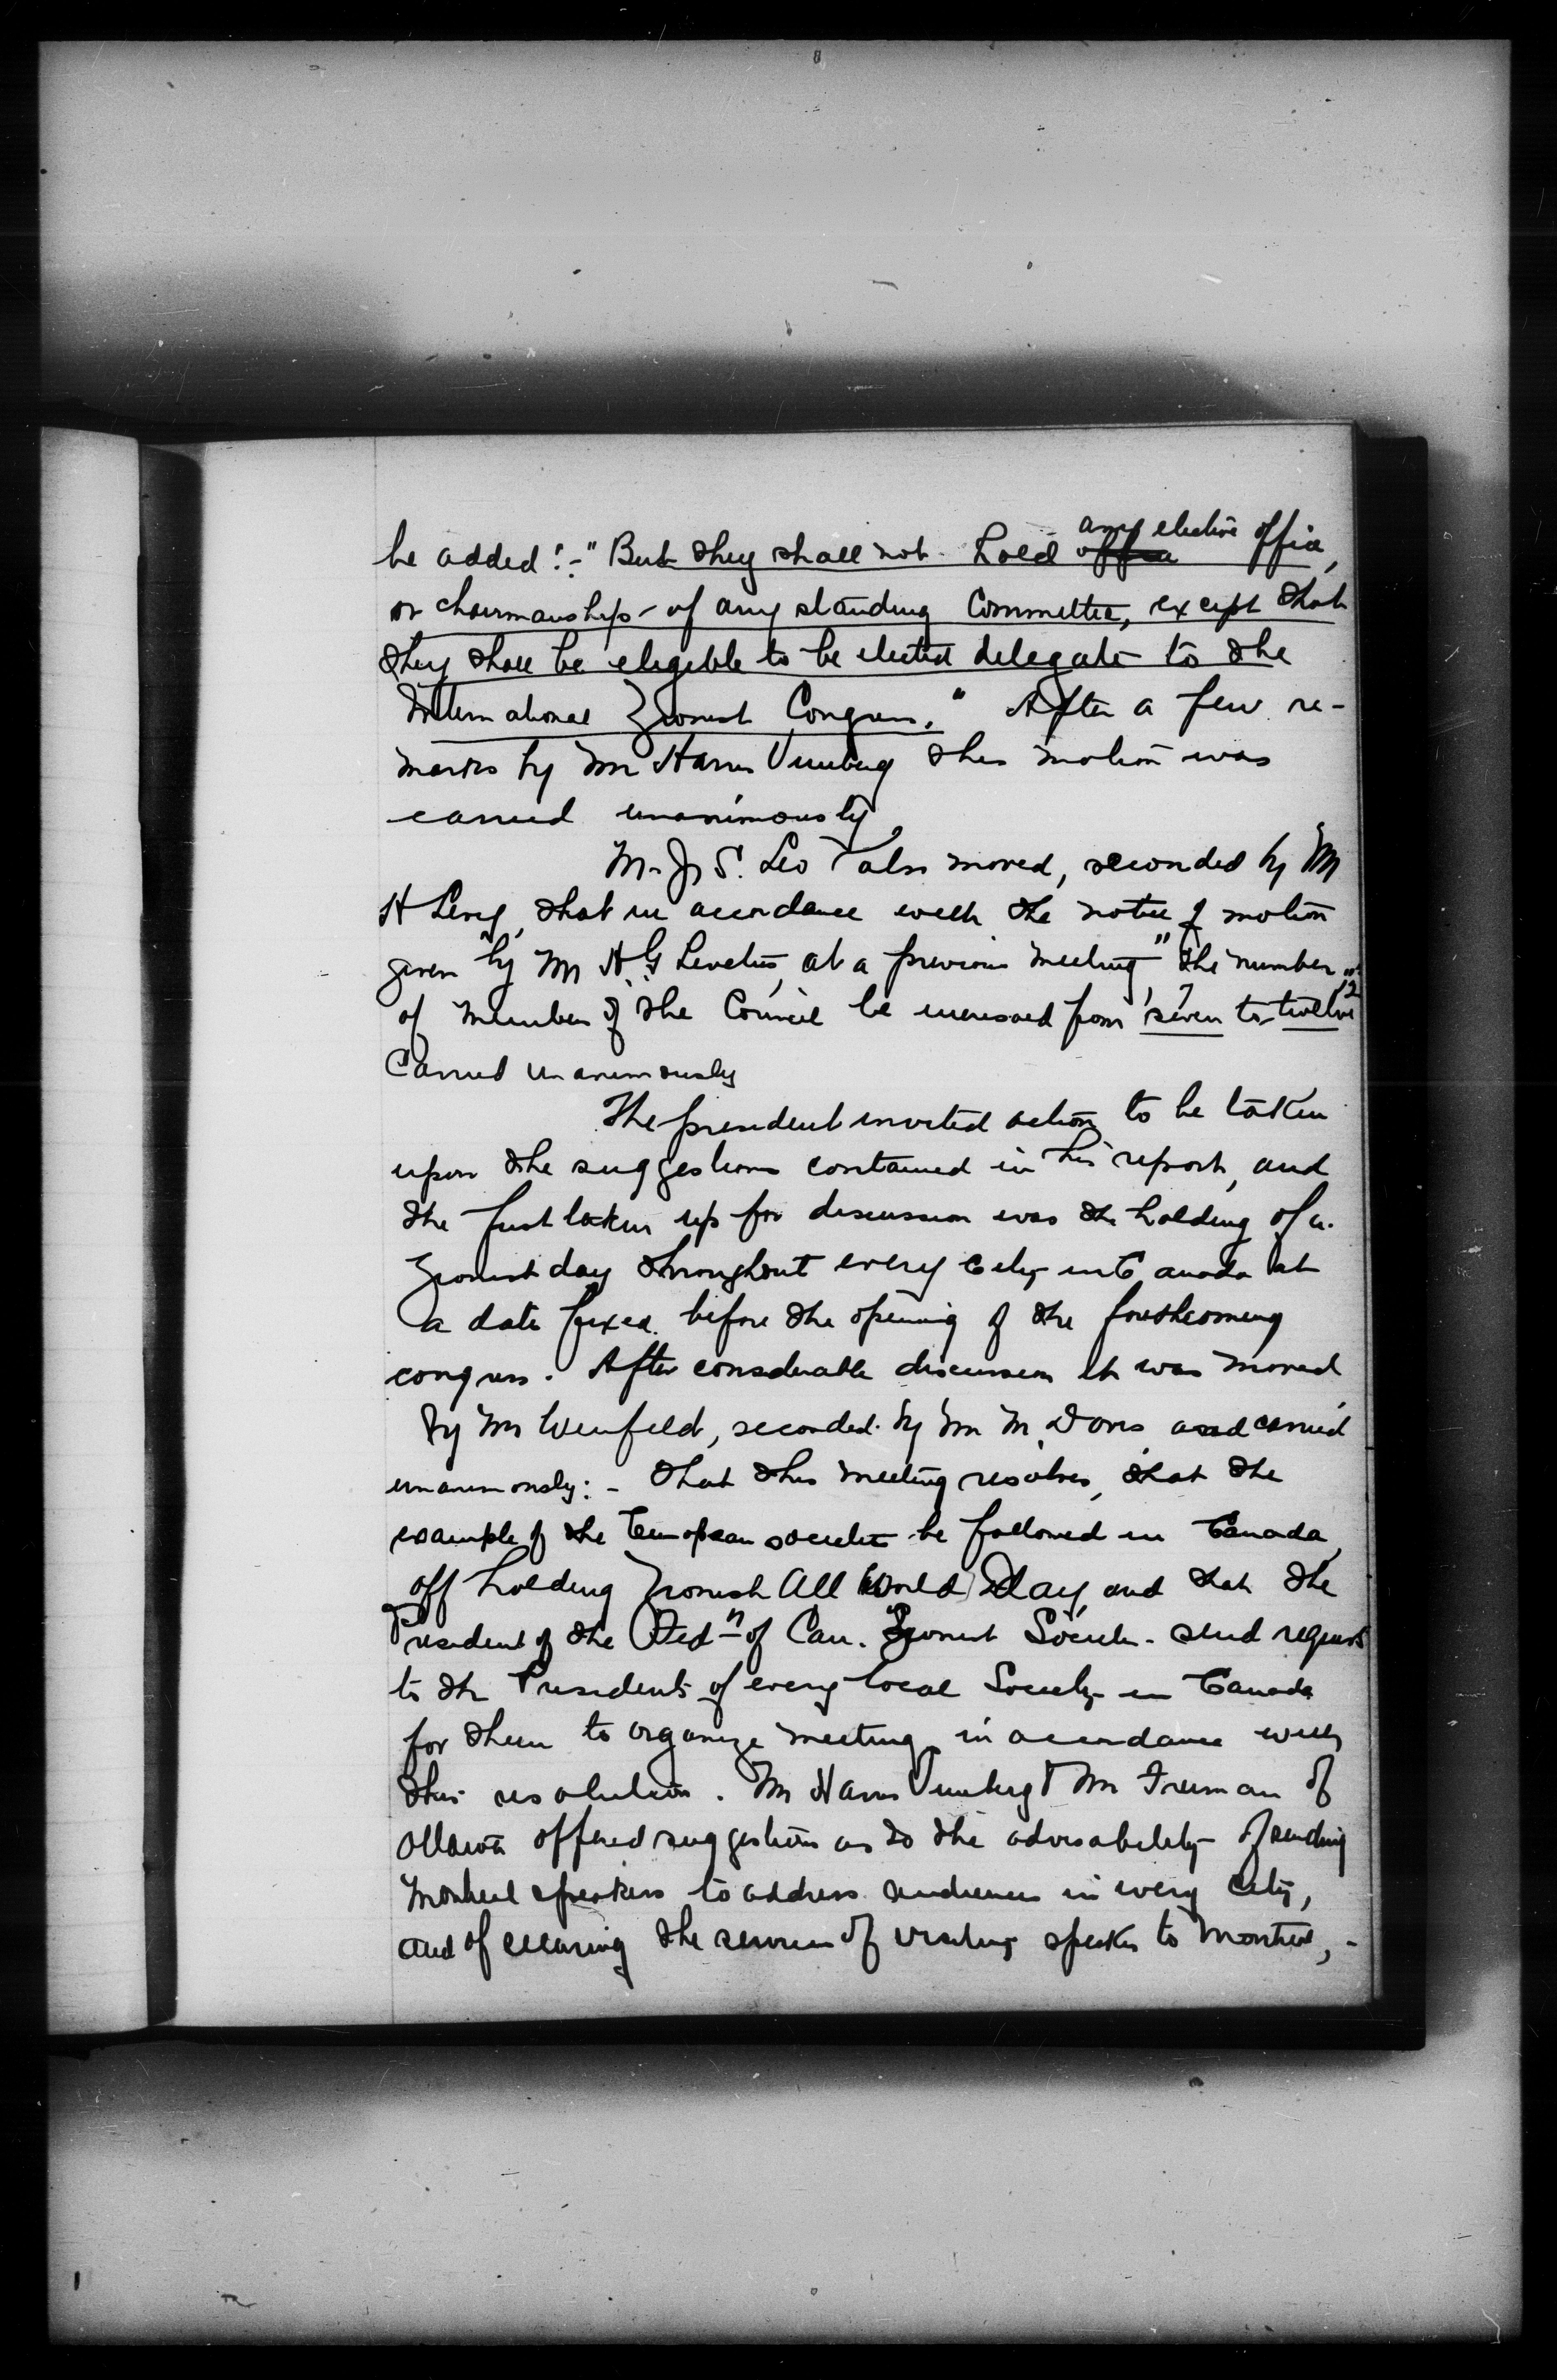 be added:- "But they shall not hold any elective office,
or chairmanship of any standing Committee, except that
they shall be elegible to be elected delegate to the
International Zionist Congress." After a few re-
marks by Mr Harris Vineberg this motion was
carried unanimously
Mr. J. S. Leo also moved, seconded by Mr
H Levy, that in accordance with the notice of motion
given by Mr H. G Levetus, at a previous meeting, "the number
of members of the Council be increased from seven 7 to twelve 12"
Carried unanimously
The president invited action to be taken
upon the suggestions contained in his report, and
the first taken up for discussion was the holding of a
Zionist day throughout every city in Canada at
a date fixed before the opening of the forthcoming
congress. After considerable discussion it was moved
by Mr Weinfeld, seconded by Mr M. Doris and carried
unanimously:- that this meeting resolves, that the
example of the European societies be followed in Canada,
off holding Zionist All World Day, and that the
President of the Fed-n of Can. Zionist Societies send requests
to the Presidents of every local Society in Canada
for them to organize meetings in accordance with
this resolution. Mr Harris Vineberg & Mr Freeman of
Ottawa offered suggestions as to the advisability of sending
Montreal speakers to address audiences in every city,
and of securing the services of visiting speakers to Montreal, -